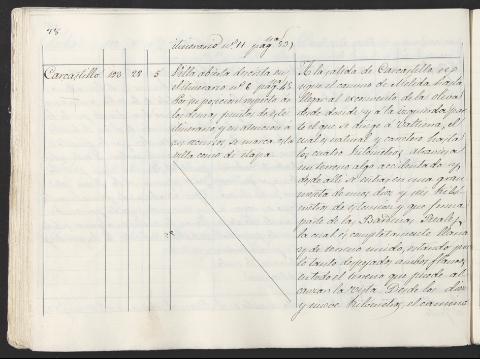 78
itinerario nº 11 pag.ª 33)
Carcastillo 123 28 5 Villa abierta descrita en
el itinerario nº 6 pag.ª 45
Por su posicion respecto a
los demas puntos de este
itinerario y en atencion a
sus recursos se marca esta
villa como de etapa.
A la salida de Carcastillo se
sigue el camino de Mélida hasta
llegar al
desde donde á la izquierda por
el que se dirige á Valtierra, el
cual es natural y carretero hasta
los cuatro kilometros, atraviesa
un terreno algo accidentado y
desde alli se entra en una gran
meseta de unos diez y seis kilo-
metros de estension y que forma
parte de las Bardenas Reales,
la cual es completamente llana
y de terreno unido, estando por
lo tanto despejados ambos flancos,
en todo el terreno que puede al-
canzar la vista. Desde los diez
y nueve kilometros, el camino